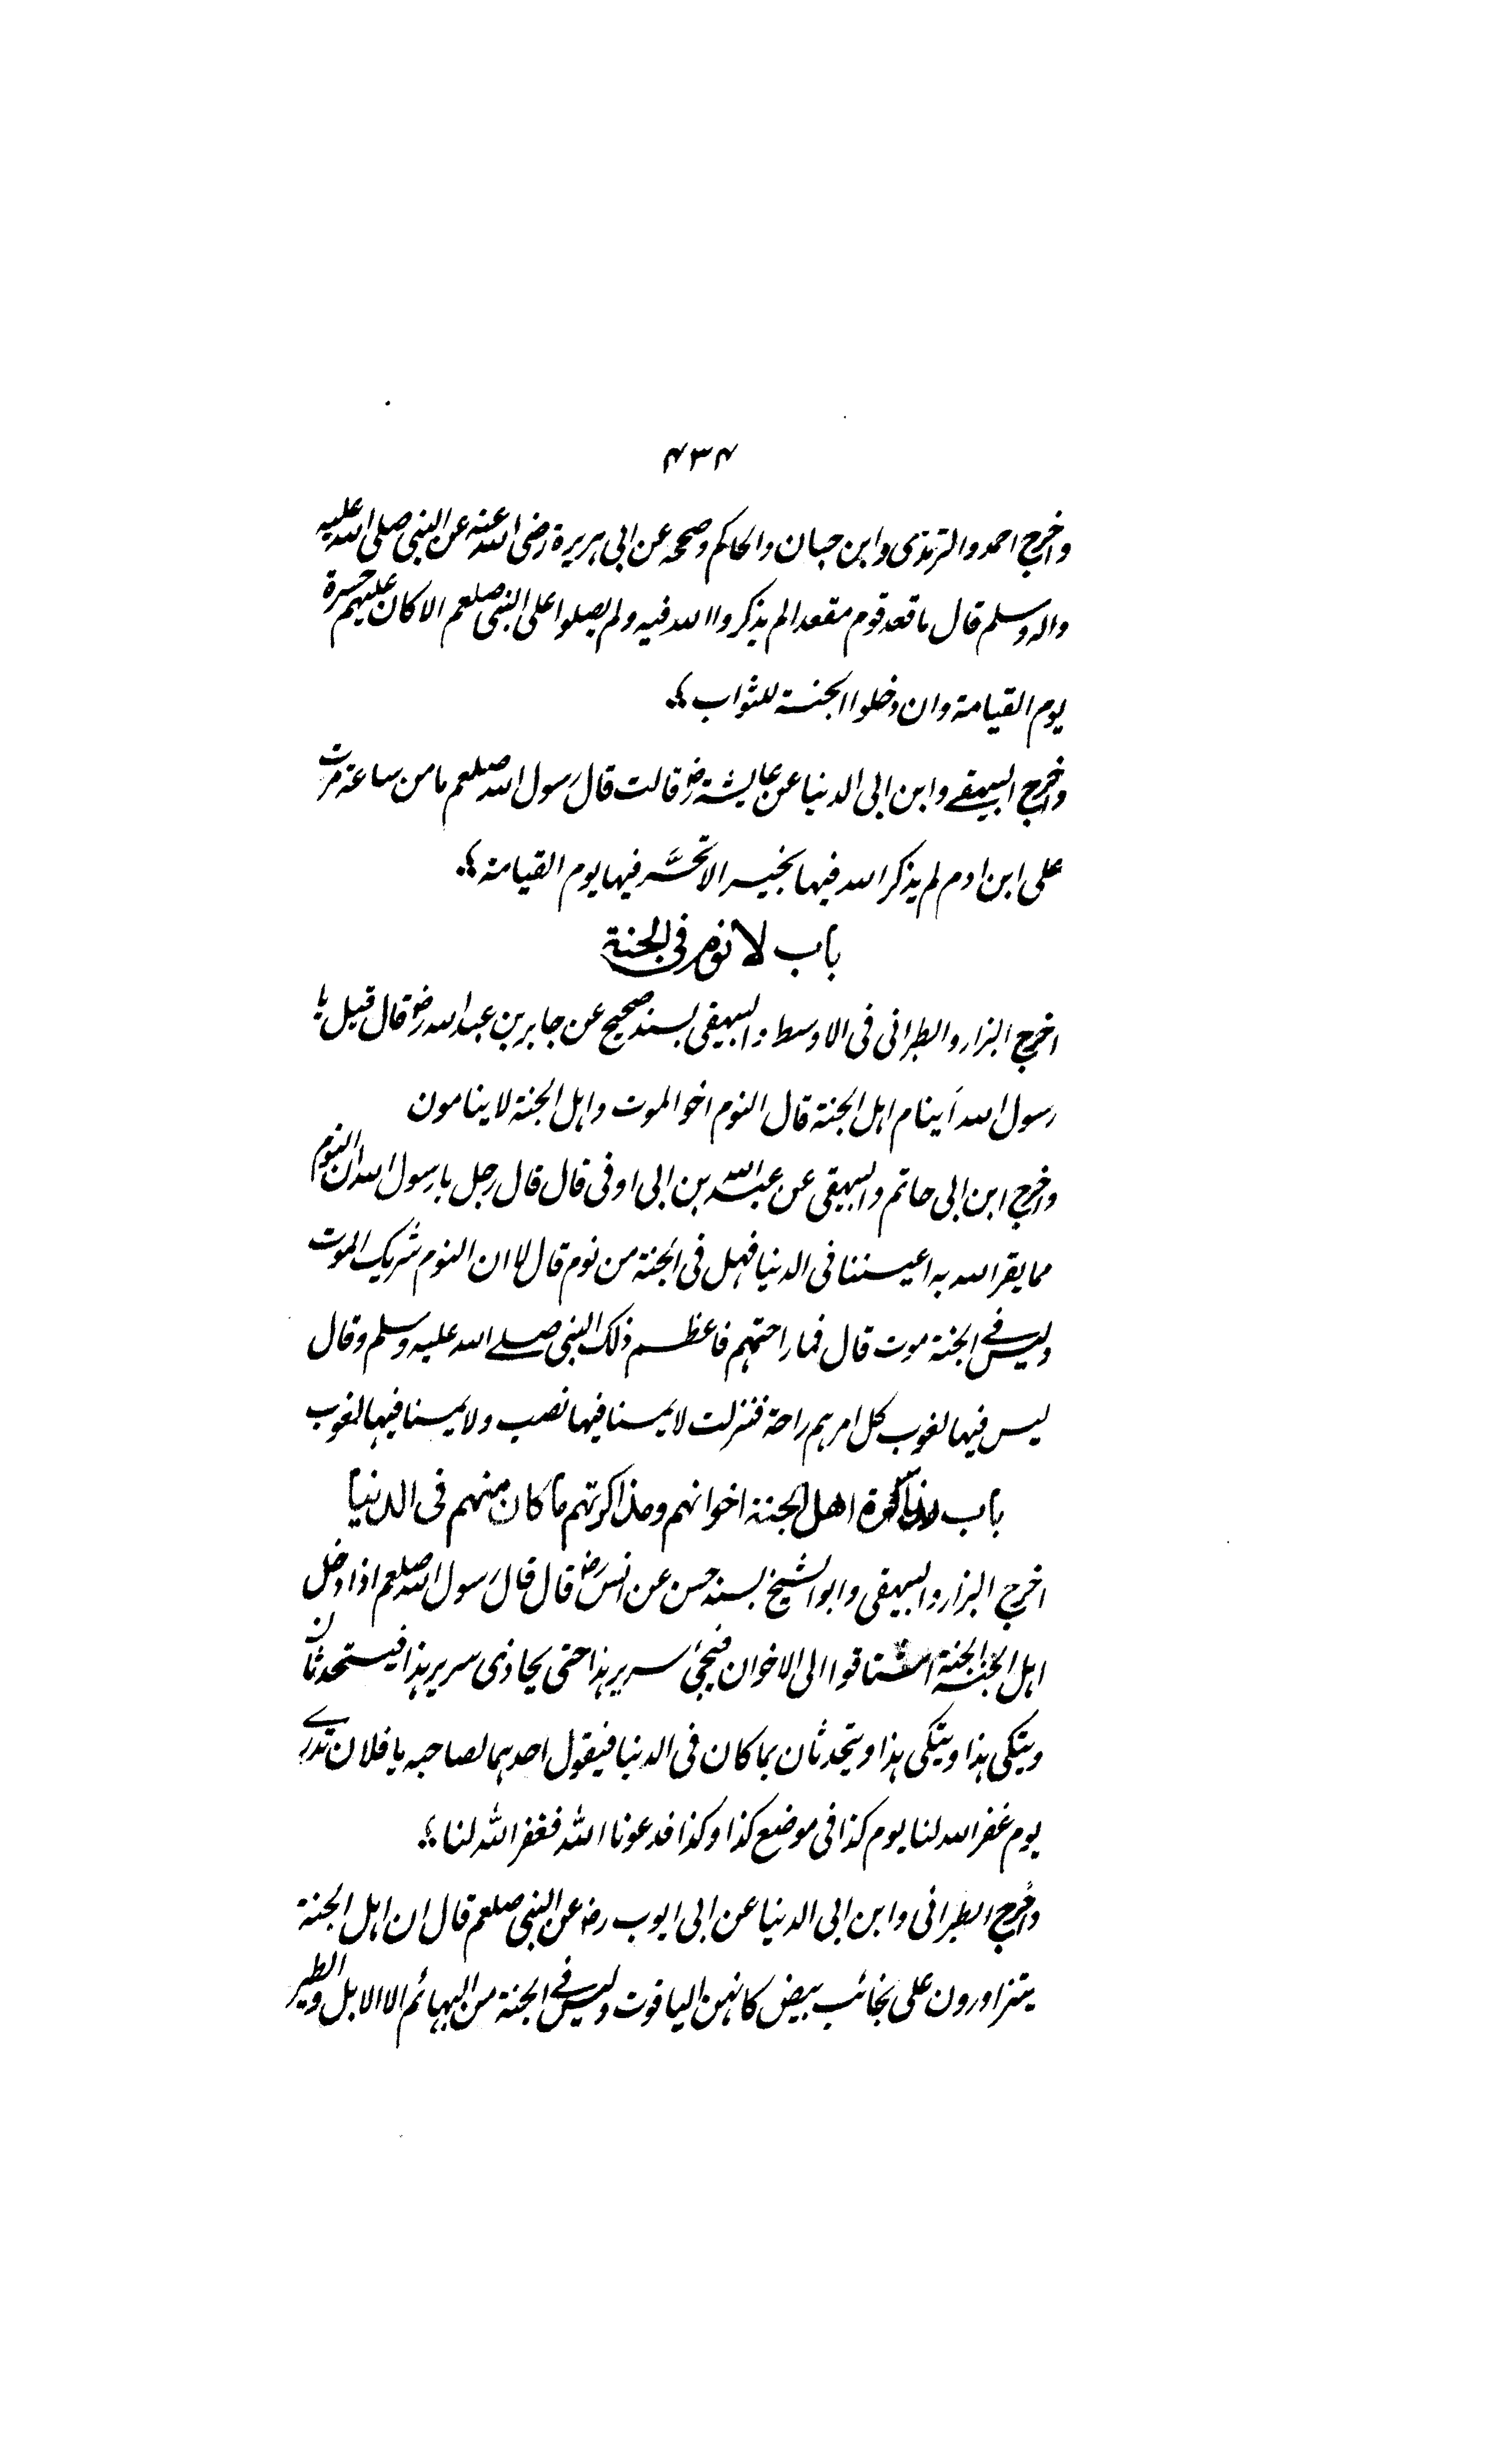 ۴۳۴
واخرج احمد والترمذى وابن حبان والحاكم وصححه عن ابى هريرة رضى الله عنه عن النبى صلى الله عليه
واله وسلم قال ما قعد قوم مقعدا لم يذكروا الله فيه ولم يصلوا على النبى صلعم الا كان عليهم حسرة
يوم القيامة وان دخلوا الجنة للثواب
واخرج البيهقے وابن ابى الدنيا عن عايشة رض قالت قال رسول الله صلعم ما من ساعة مرت
على ابن ادم لم يذكر الله فيها بخير الا تحسَّر فيها يوم القيامة
باب لا نوم فى الجنة
اخرج البزار والطبرانى فى الاوسط والبيهقى بسند صحيح عن جابر بن عبد الله رض قال قيل يا
رسول الله أينام اهل الجنة قال النوم اخو الموت واهل الجنة لا ينامون
واخرج ابن ابى حاتم والبيهقى عن عبد الله بن ابى اوفى قال قال رجل يا رسول الله ان النوم
مما يقر الله به اعيننا فى الدنيا فهل فى الجنة من نوم قال لا ان النوم شريك الموت
وليس فے الجنة موت قال فما راحتهم فاعظم ذلك النبى صلے الله عليه وسلم وقال
ليس فيها لغوب كل امرهم راحة فنزلت لا يمسنا فيها نصب ولا يمسنا فيها لغوب
باب اهل الجنة اخوانهم ومذاكرتهم ما كان منهم فى الدنيا
اخرج البزار والبيهقى وابو الشيخ بسند حسن عن انس رض قال قال رسول الله صلعم اذا دخل
اهل الجنة الجنة اشتاقوا الى الاخوان فيجئ سرير هذا حتى يحاذى سرير هذا فيتحدثان
ويتكى هذا ويتكى هذا ويتحدثان بما كان فى الدنيا فيقول احدهما لصاحبه يا فلان تدرے
يوم غفر الله لنا يوم كذا فى موضع كذا وكذا فدعونا الله فغفر الله لنا
واخرج الطبرانى وابن ابى الدنيا عن ابى ايوب رض عن النبى صلعم قال ان اهل الجنة
يتزاورون على نجائب بيض كانهن الياقوت وليس فے الجنة من البهائم الا الابل والطير